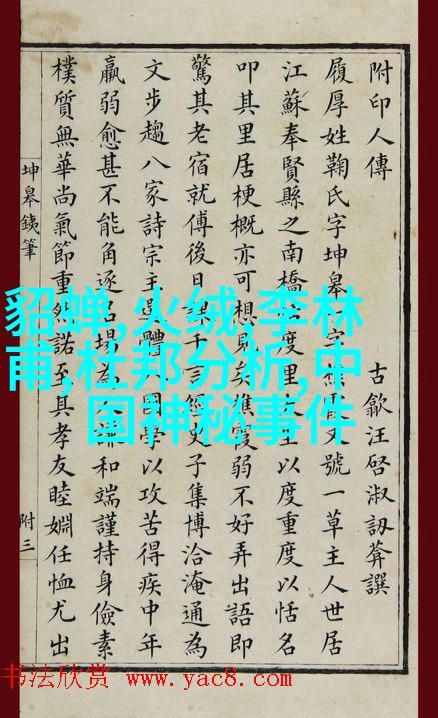 附印人傳 古歙汪啓淑訒葊譔
履厚姓鞠氏字坤皋 字 號一草主人世居
江蘇奉賢縣之南橋 度里 以度重度以恬名
叩其里居梗概亦可想見矣樵霞弱不好弄出語即
驚其老宿就傅後日課千言經史子集博洽淹通為
文步趨八家詩宗主選體 國學以攻苦得疾中年
羸弱愈甚不能角逐名場為 謙和端謹持身儉素
樸質無華尚氣節重然諾至其孝友睦婣任恤尤出
坤皋銕筆
附三
貂蝉,火绒,李林
甫,杜邦分析,中
国神秘事件
书法欣赏 www.yac8.com